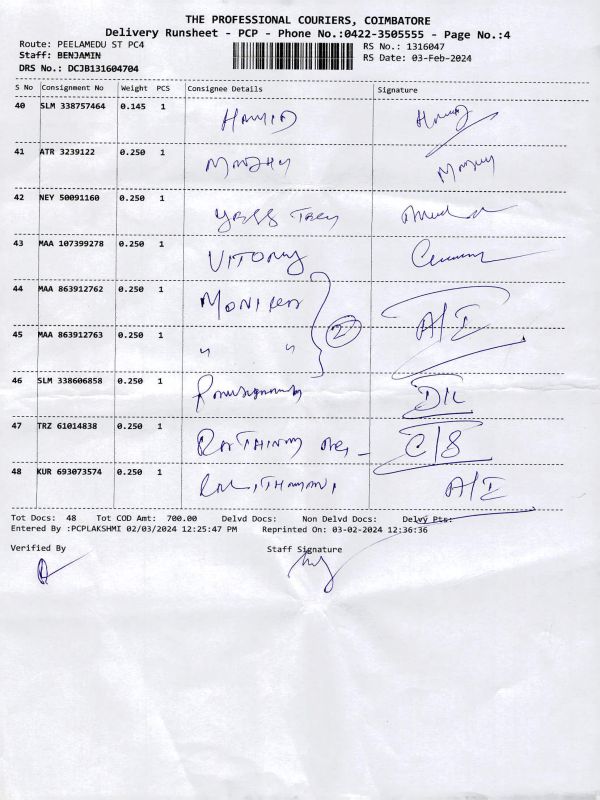 THE PROFESSIONAL COURIERS, COIMBATORE
Delivery Runsheet - PCP - Phone No.:0422-3505555 - Page No.:4
Route: PEELAMEDU ST PC4 RS No.: 1316047
Staff: BENJAMIN RS Date: 03-Feb-2024
DRS No.: DCJB131604704
S No Consignment No Weight PCS Consignee Details Signature
40 SLM 338757464 0.145 1 HAMID
41 ATR 3239122 0.250 1
42 NEY 50091160 0.250 1
43 MAA 107399278 0.250 1 VITONY
44 MAA 863912762 0.250 1 A/I
2
45 MAA 863912763 0.250 1 " "
46 SLM 338606858 0.250 1 D/L
47 TRZ 61014838 0.250 1 C/8
48 KUR 693073574 0.250 1 A/I
Tot Docs: 48 Tot COD Amt: 700.00 Delvd Docs: Non Delvd Docs: Delvy Pts:
Entered By :PCPLAKSHMI 02/03/2024 12:25:47 PM Reprinted On: 03-02-2024 12:36:36
Verified By Staff Signature